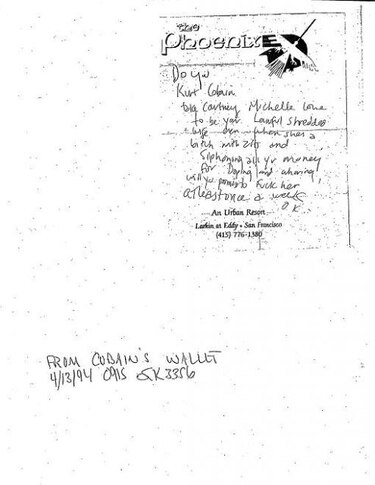 the
Phoenix
Do you
Kurt Cobain
take Courtney Michelle Love
to be your Lawful shredded
wife even when shes a
bitch with zits and
siphoning all yr money
for doping and whoring,
will you promise to fuck her
at least once a week
OK
An Urban Resort
Larkin at Eddy • San Francisco
(415) 776-1380
FROM COBAIN'S WALLET
4/13/94 0915 JK3356